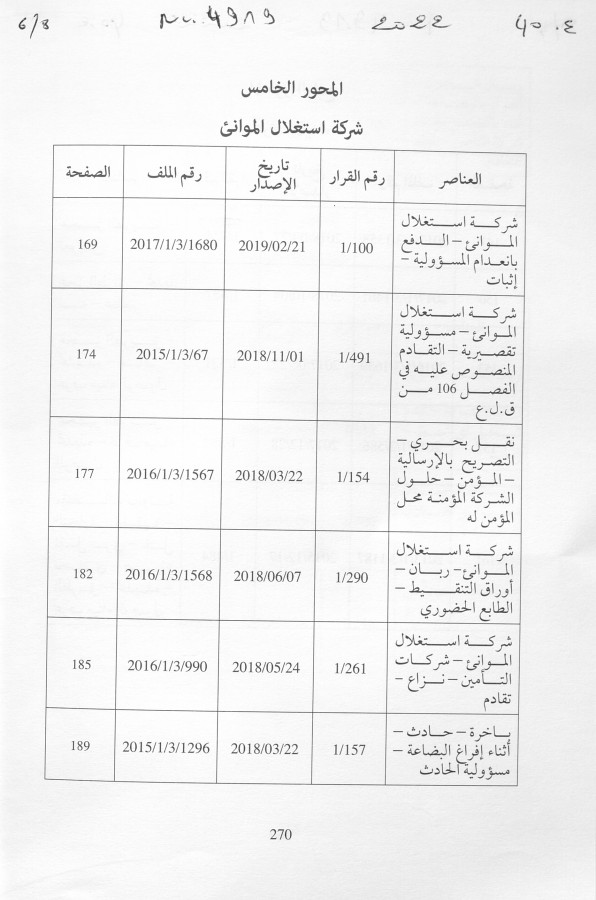 6/8 Nu. 4919 2022 40.٤
المحور الخامس
شركة استغلال الموانئ
العناصر رقم القرار تاريخ الإصدار رقم الملف الصفحة
شركة استغلال
الموانئ – الدفع
بانعدام المسؤولية –
إثبات
1/100 2019/02/21 2017/1/3/1680 169
شركة استغلال
الموانئ – مسؤولية
تقصيرية – التقادم
المنصوص عليه في
الفصل 106 من
ق.ل.ع
1/491 2018/11/01 2015/1/3/67 174
نقل بحري –
التصريح بالإرسالية
– المؤمن – حلول
الشركة المؤمنة محل
المؤمن له
1/154 2018/03/22 2016/1/3/1567 177
شركة استغلال
الموانئ – ربان –
أوراق التنقيط –
الطابع الحضوري
1/290 2018/06/07 2016/1/3/1568 182
شركة استغلال
الموانئ – شركات
التأمين – نزاع –
تقادم
1/261 2018/05/24 2016/1/3/990 185
باخرة – حادث –
أثناء إفراغ البضاعة –
مسؤولية الحادث
1/157 2018/03/22 2015/1/3/1296 189
270